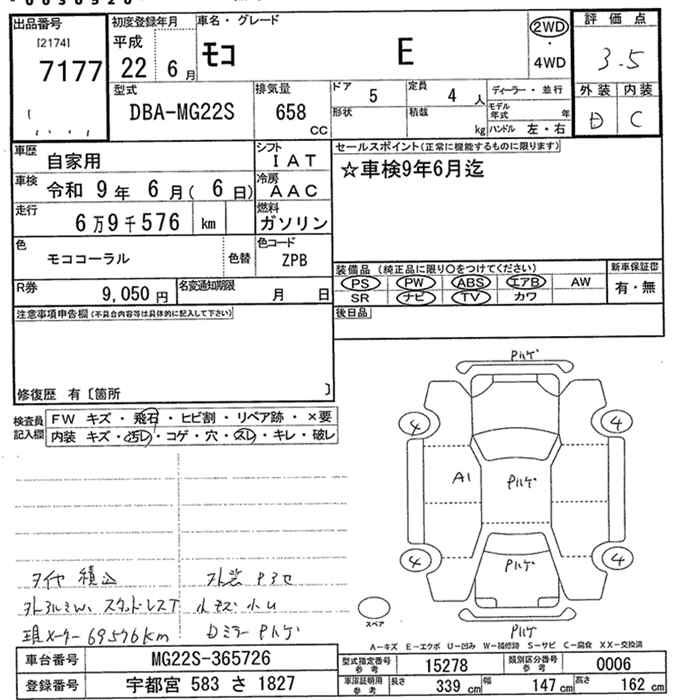 出品番号
[2174]
7177
初度登録年月
平成
22年 6月
車名・グレード
モコ E
2WD
・
4WD
評価点
3.5
外装 内装
D C
型式
DBA-MG22S
排気量
658
CC
ドア
5
定員
4人
形状
積載
kg
ディーラー・並行
モデル年式 年
ハンドル 左・右
車歴
自家用
シフト
IAT
車検
令和 9年 6月( 6日)
冷房
AAC
走行
6万9千576 km
燃料
ガソリン
色
モココーラル
色替
色コード
ZPB
R券
9,050円
名変通知期限
月 日
セールスポイント(正常に機能するものに限ります)
☆車検9年6月迄
装備品(純正品に限り○をつけてください)
PS PW ABS エアB AW
SR ナビ TV カワ
新車保証書
有・無
後日品
注意事項申告欄(不具合内容等は具体的に記入して下さい)
修復歴 有〔箇所 〕
検査員記入欄
FW キズ・飛石・ヒビ割・リペア跡・×要
内装 キズ・汚レ・コゲ・穴・スレ・キレ・破レ
タイヤ積込
外装 P3セ
外アルミW. スタッドレスT
小キズ・小U
現メーター69576km
Dミラー Pハゲ
Pハゲ
4
4
A1
Pハゲ
4
4
Pハゲ
Pハゲ
スペア
A-キズ E-エクボ U-凹み W-補修跡 S-サビ C-腐食 XX-交換済
車台番号
MG22S-365726
型式指定番号 参考
15278
類別区分番号 参考
0006
登録番号
宇都宮 583 さ 1827
車庫証明用 参考
長さ 339 cm
幅 147 cm
高さ 162 cm